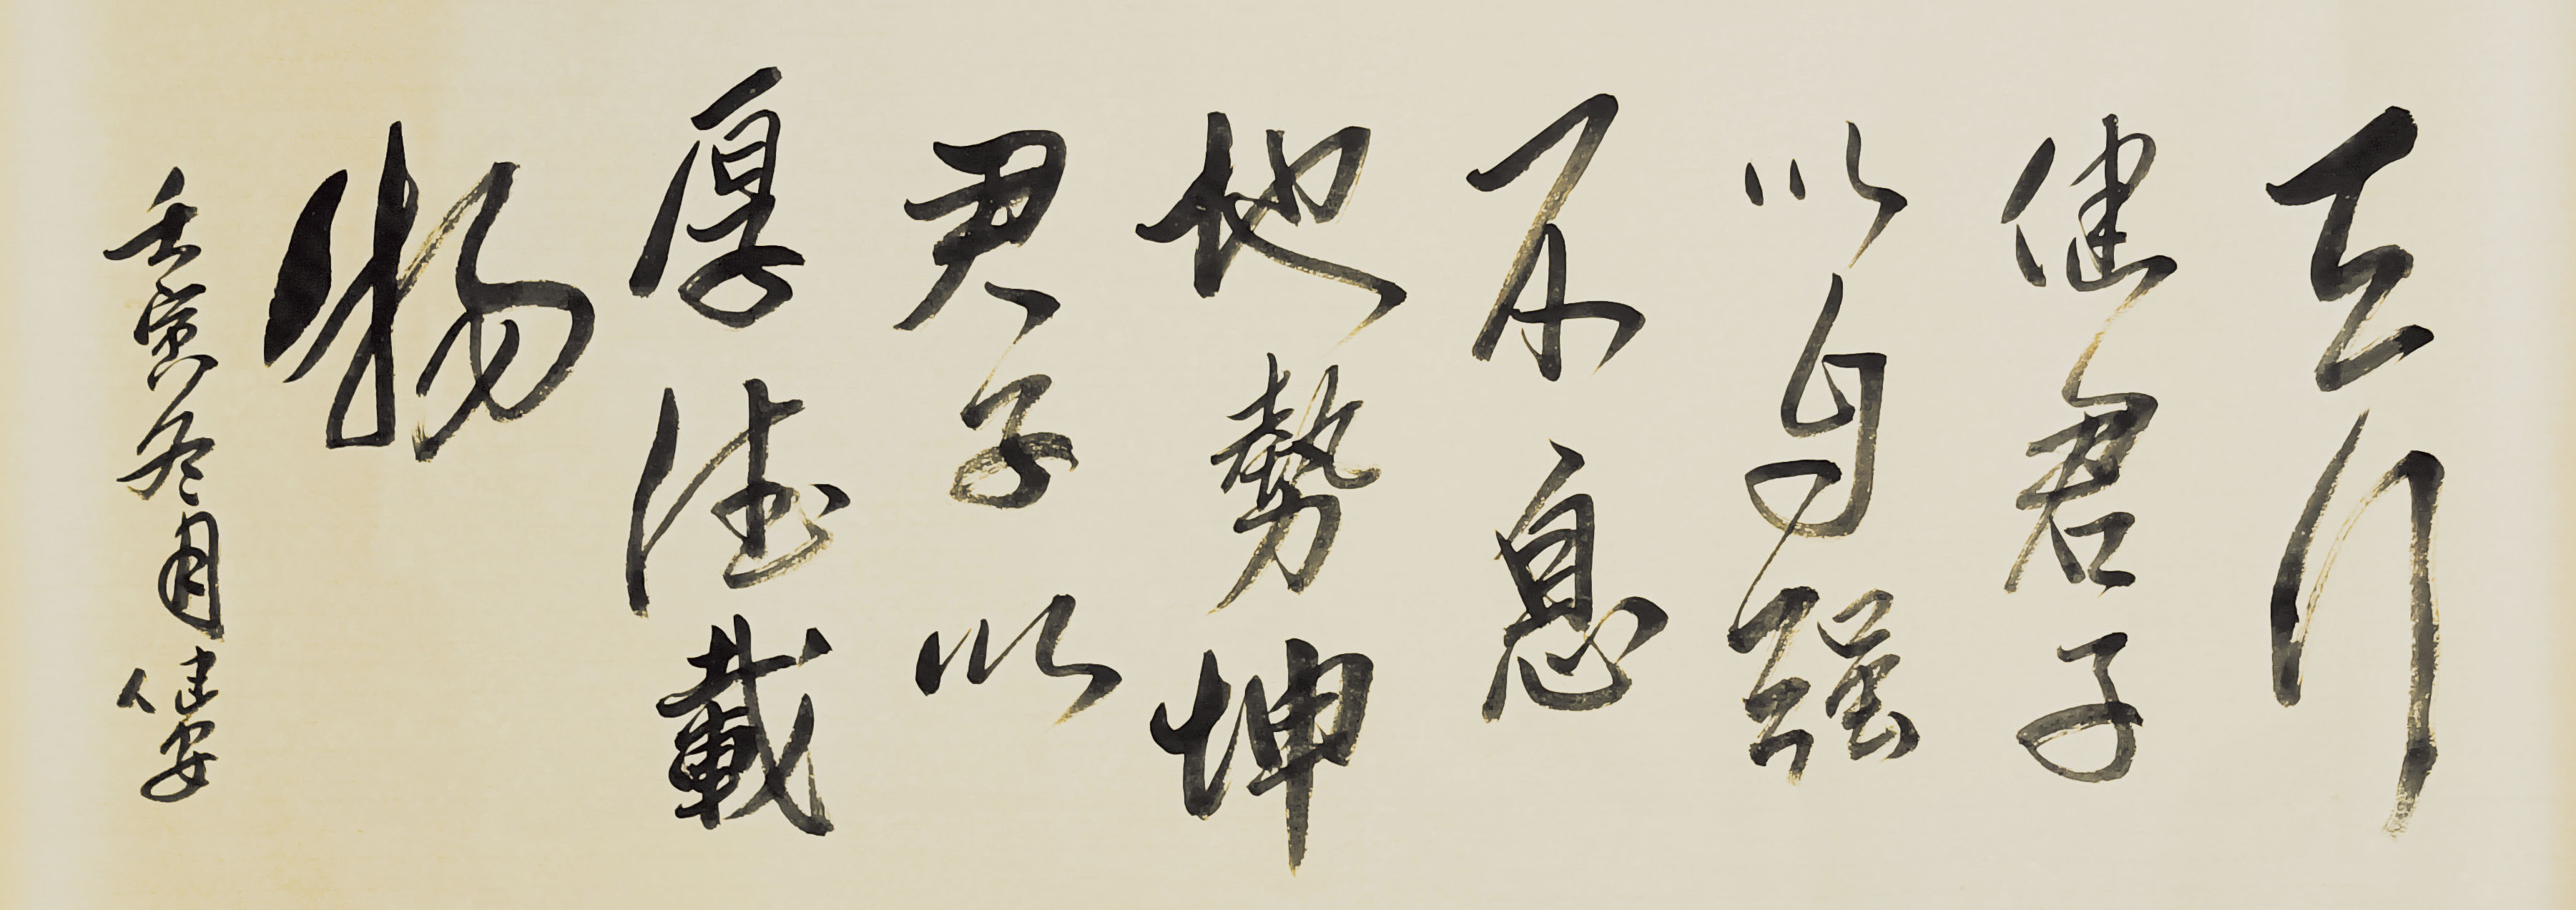 天行
健君子
以自強
不息
地勢坤
君子以
厚德載
物
壬寅冬月健安